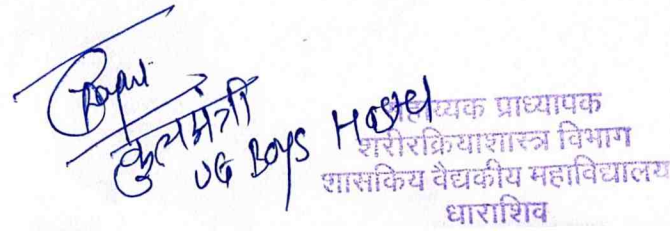 कुलमंत्री
UG Boys Hostel
सहाय्यक प्राध्यापक
शरीरक्रियाशास्त्र विभाग
शासकिय वैद्यकीय महाविद्यालय
धाराशिव